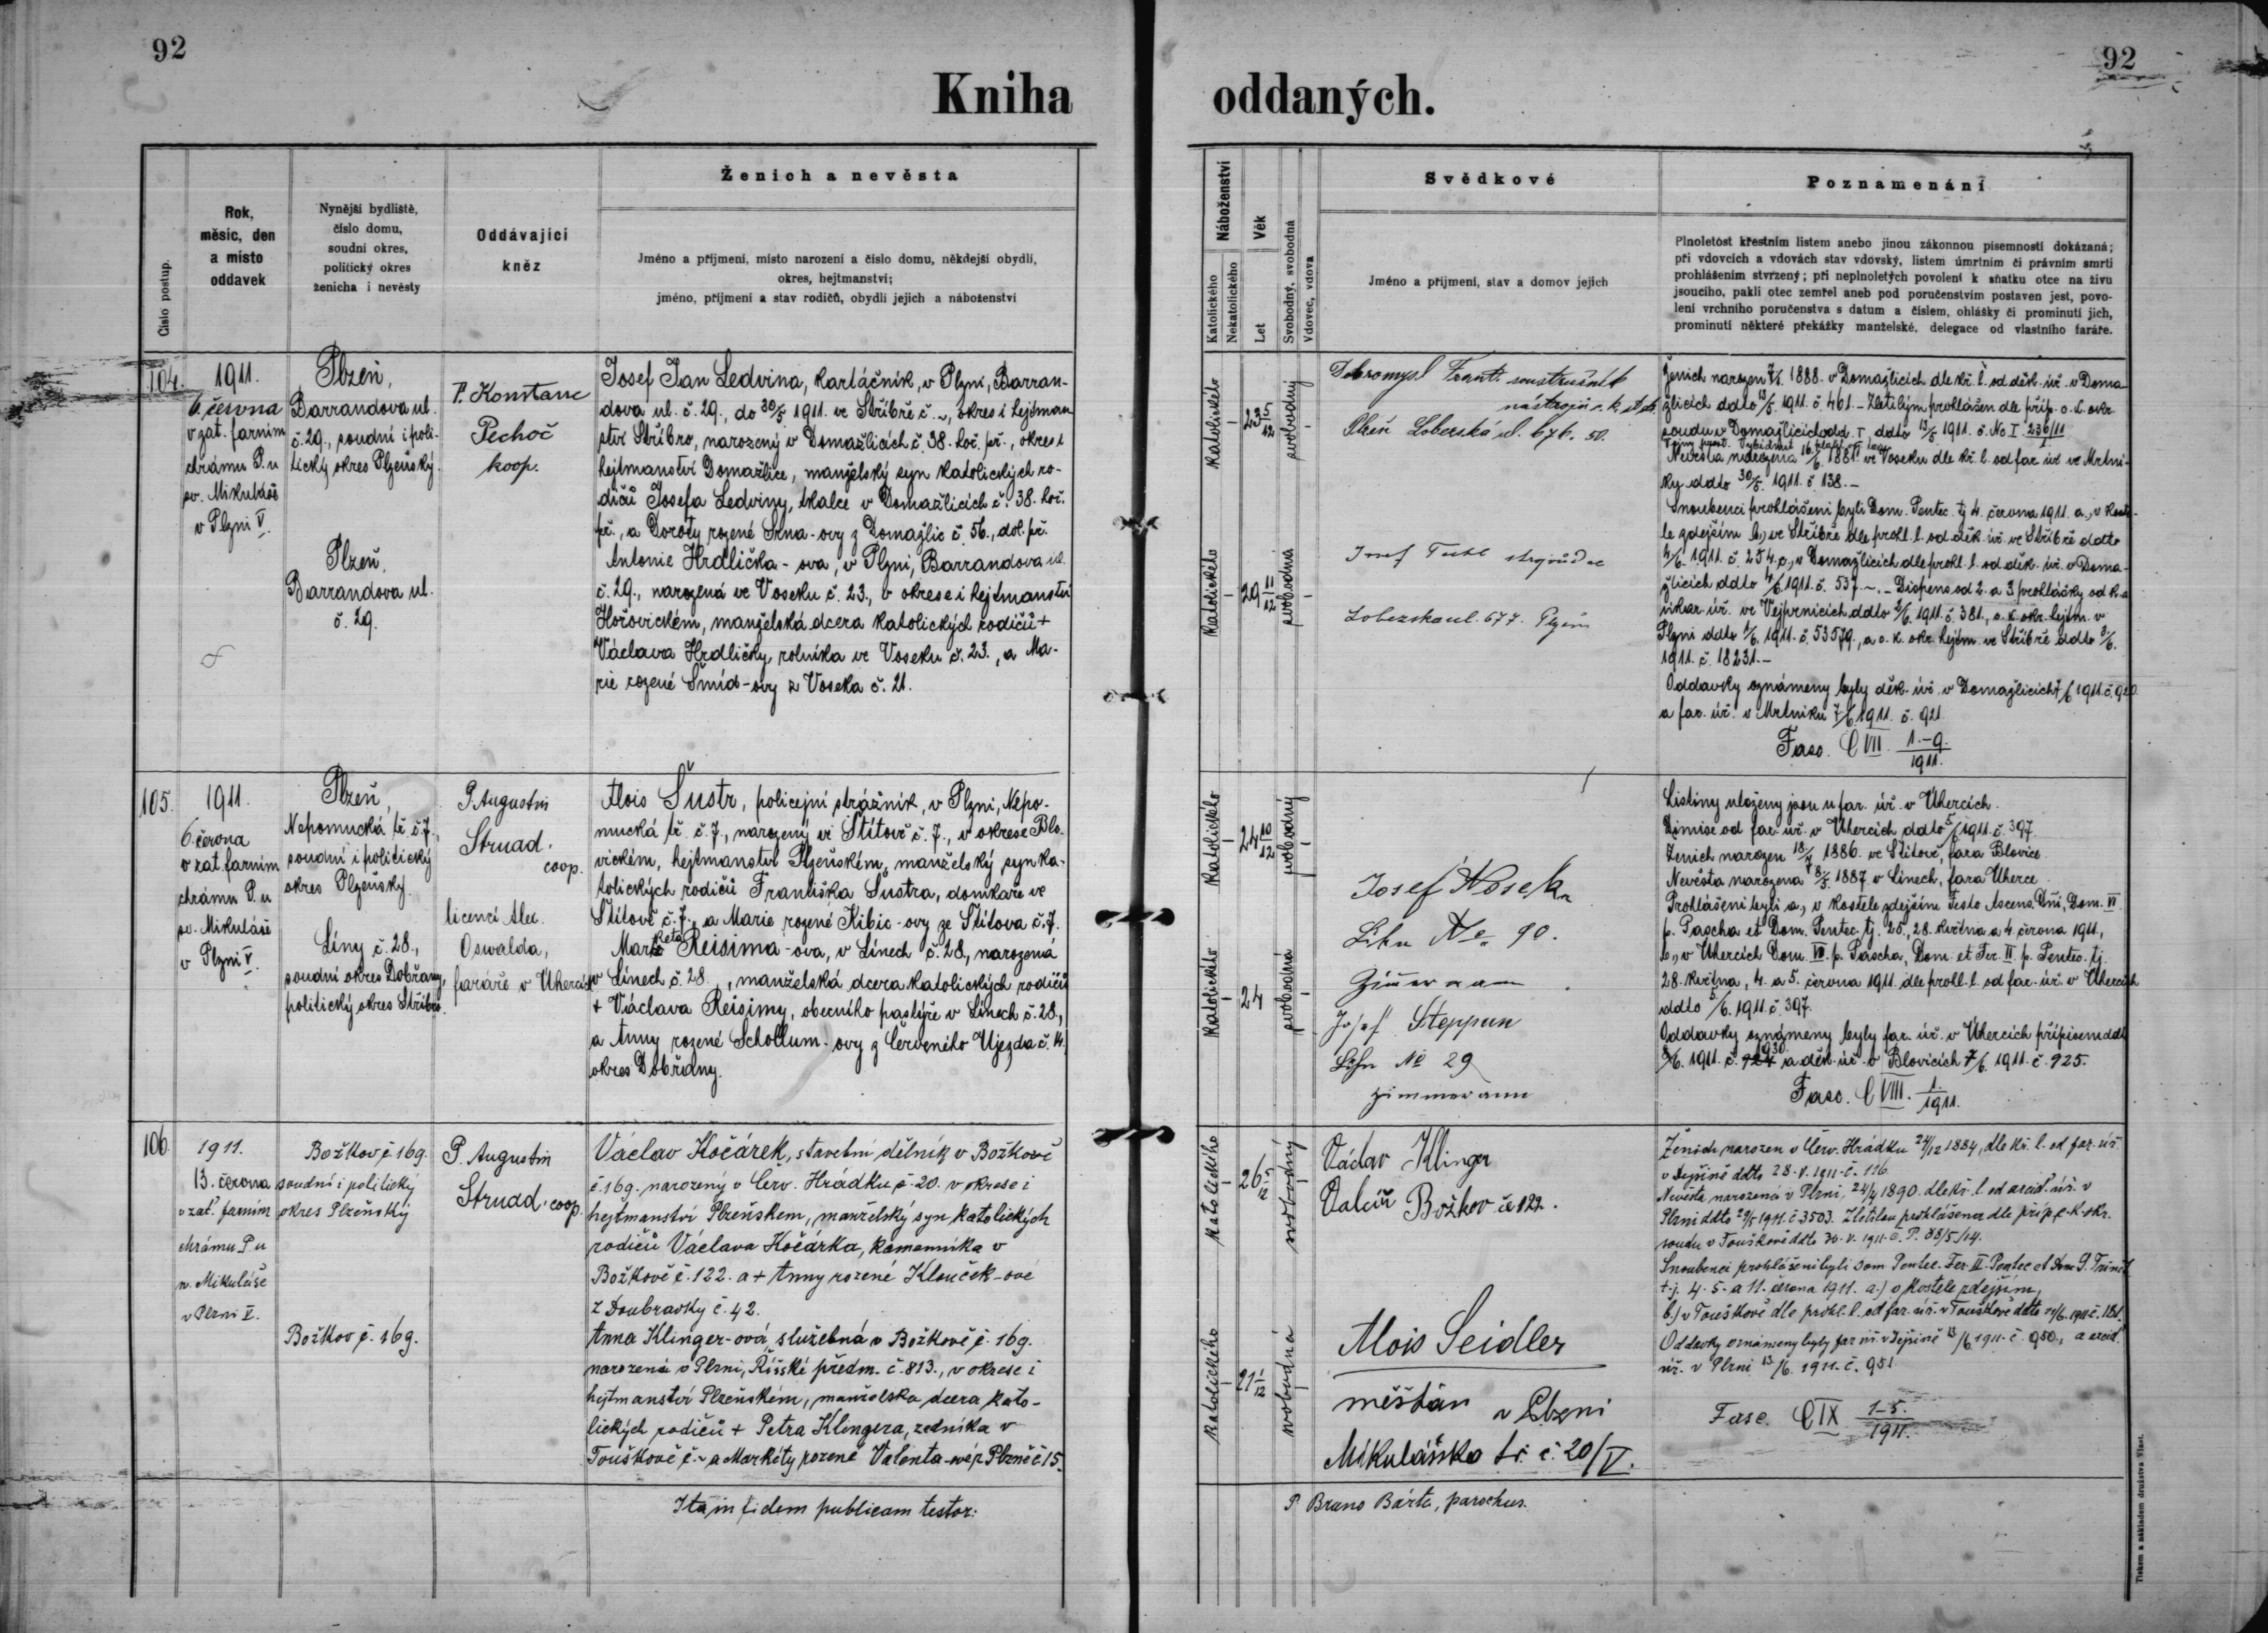 92
92
Kniha oddaných.
Číslo postup.
Rok,
měsíc, den
a místo
oddavek
Nynější bydliště,
číslo domu,
soudní okres,
politický okres
ženicha i nevěsty
Oddávající
kněz
Ženich a nevěsta
Jméno a příjmení, místo narození a číslo domu, někdejší obydlí,
okres, hejtmanství;
jméno, příjmení a stav rodičů, obydlí jejich a náboženství
Náboženství
Katolického
Nekatolického
Věk
Let
Svobodný, svobodná
Vdovec, vdova
Svědkové
Jméno a příjmení, stav a domov jejich
Poznamenání
Plnoletost křestním listem anebo jinou zákonnou písemností dokázaná;
při vdovcích a vdovách stav vdovský, listem úmrtním či právním smrti
prohlášením stvrzený; při neplnoletých povolení k sňatku otce na živu
jsoucího, pakli otec zemřel aneb pod poručenstvím postaven jest, povo-
lení vrchního poručenstva s datum a číslem, ohlášky či prominutí jich,
prominutí některé překážky manželské, delegace od vlastního faráře.
104.
1911.
6. června
v zat. farním
chrámu P. u
sv. Mikuláše
v Plzni V.
Plzeň,
Barrandova ul.
č. 29., soudní i poli-
tický okres Plzeňský.
Plzeň,
Barrandova ul.
č. 29.
P. Konstanc
Pechoč
koop.
Josef Jan Ledvina, kartáčník, v Plzni, Barran-
dova ul. č. 29., do 30/5 1911. ve Stříbře č. ~, okres i hejtman
ství Stříbro, narozený v Domažlicích č. 38. hoř. př., okres i
hejtmanství Domažlice, manželský syn katolických ro-
dičů Josefa Ledviny, tkalce v Domažlicích č. 38. hoř.
př., a Doroty rozené Skna-ovy z Domažlic č. 56., dol. př.
Antonie Hrdlička-ova, v Plzni, Barrandova ul.
č. 29., narozená ve Voseku č. 23., v okrese i hejtmanství
Hořovickém, manželská dcera katolických rodičů +
Václava Hrdličky, rolníka ve Voseku č. 23., a Ma-
rie rozené Šmíd-ovy z Voseka č. 21.
katolického
23 5/12
svobodný
katolického
29 11/12
svobodná
Dobromysl Frant. soustružník
nástrojů c. k. st. dr.
Plzeň Loberská ul. 676. 50.
Josef
Loberska ul. 677. Plzeň
Ženich narozen 7/1. 1888. v Domažlicích dle kř. l. od děk. úř. v Doma-
žlicích ddto 13/5. 1911. č. 461. – Zletilým prohlášen dle příp. c. k. okr.
soudu v Domažlicích odd. I ddto 13/5 1911. č. Nc I 236/11
Nevěsta narozena 16/6. 1881. ve Voseku dle kř. l. od far. úř. ve Mrtní-
ky ddto 30/5. 1911. č. 138. –
Snoubenci prohlášeni byli Dom. Pentec. tj. 4. června 1911. a., v koste-
le zdejším b., ve Stříbře dle prohl. l. od děk. úř. ve Stříbře ddto
4/6. 1911. č. 254. c., v Domažlicích dle prohl. l. od děk. úř. v Doma-
žlicích ddto 4/6. 1911. č. 537. ~. – Dispens od 2. a 3 prohlášky od k. a
vikar. úř. ve Vejprnicích ddto 2/6. 1911. č. 381., c. k. okr. hejtm. v
Plzni ddto 1/6. 1911. č. 53579., a c. k. okr. hejtm. ve Stříbře ddto 3/6.
1911. č. 18231. –
Oddavky oznámeny byly děk. úř. v Domažlicích 7/6 1911. č. 920.
a far. úř. v Mrtníku 7/6. 1911. č. 921.
Fasc. C VII. 1.-9./1911.
105.
1911.
6. června
v zat. farním
chrámu P. u
sv. Mikuláše
v Plzni V.
Plzeň,
Nepomucká tř. č. 7.,
soudní i politický
okres Plzeňský.
Líny č. 28.,
soudní okres Dobřany,
politický okres Stříbro.
P. Augustin
Strnad,
coop.
licenci Alex.
Oswalda,
faráře v Úhercích
Alois Šustr, policejní strážník, v Plzni, Nepo-
mucká tř. č. 7., narozený ve Štítově č. 7., v okrese Blo-
vickém, hejtmanství Plzeňském, manželský syn ka-
tolických rodičů Františka Šustra, domkaře ve
Štítově č. 7., a Marie rozené Kibic-ovy ze Štítova č. 7.
Markéta Reisima-ova, v Línech č. 28., narozená
v Línech č. 28., manželská dcera katolických rodičů
+ Václava Reisimy, obecního pastýře v Línech č. 28.,
a Anny rozené Schollum-ovy z Červeného Újezda č. 14.
okres Dobřany.
katolického
24 10/12
svobodný
katolického
24
svobodná
Josef Nosek
Lihn No 90.
Zimerman
Josef Steppun
Lihn No 29
Zimmermann
Listiny uloženy jsou u far. úř. v Úhercích.
Dimise od far. úř. v Úhercích ddto 5/6 1911. č. 397.
Ženich narozen 18/7 1886. ve Štítově, fara Blovice.
Nevěsta narozena 8/5. 1887. v Línech, fara Úherce.
Prohlášeni byli a., v kostele zdejším Festo Ascens. Dñi, Dom. VI
p. Pascha et Dom. Pentec. tj. 25., 28. května a 4. června 1911.,
b., v Úhercích Dom. VI. p. Pascha, Dom. et Fer. II. p. Pentec. tj.
28. května, 4. a 5. června 1911. dle prohl. l. od far. úř. v Úhercích
ddto 5/6. 1911. č. 397.
Oddavky oznámeny byly far. úř. v Úhercích přípisem ddto
8/6. 1911. č. 924 930 a děk. úř. v Blovicích 7/6. 1911. č. 925.
Fasc. C VIII. 1./1911.
106.
1911.
13. června
v zat. farním
chrámu P. u
sv. Mikuláše
v Plzni V.
Božkov č. 169.
soudní i politický
okres Plzeňský
Božkov č. 169.
P. Augustin
Strnad, coop.
Václav Kočárek, stavební dělník v Božkově
č. 169. narozený v Červ. Hrádku č. 20. v okrese i
hejtmanství Plzeňskem, manželský syn katolických
rodičů Václava Kočárka, kamenníka v
Božkově č. 122. a + Anny rozené Klouček-ové
z Doubravky č. 42.
Anna Klinger-ová, služebná v Božkově č. 169.
narozená v Plzni, Říšské předm. č. 813., v okrese i
hejtmanství Plzeňském, manželska dcera kato-
lických rodičů + Petra Klingera, zedníka v
Touškově č. ~ a Markéty rozené Valenta-ové z Plzně č. 15.
katolického
26 5/12
svobodný
katolického
21 1/12
svobodná
Václav Klinger
Valcíř Božkov č. 122.
Alois Seidler
měšťan v Plzni
Mikulášska tř. č. 20/V.
Ženich narozen v Červ. Hrádku 24/12 1884, dle kř. l. od far. úř.
v Dejšině ddto 28. V. 1911. č. 116
Nevěsta narozená v Plzni, 24/4 1890. dle kř. l. od arcid. úř. v
Plzni ddto 29/5 1911. č. 3503. Zletilou prohlášena dle příp. c. k. okr.
soudu v Touškově ddto 30. V. 1911. č. P. 88/5/14.
Snoubenci prohlášeni byli Dom. Pentec. Fer. II. Pentec. et Dom. S. Trinit.
t. j. 4. 5. a 11. června 1911. a.) v kostele zdejším,
b.) v Touškově dle prohl. l. od far. úř. v Touškově ddto 11/6. 1911. č. 181.
Oddavky oznámeny byly far. úř. v Dejšině 13/6. 1911. č. 950., a arcid.
úř. v Plzni 13/6. 1911. č. 951.
Fasc. C IX 1-5./1911.
Ita in fidem publicam testor:
P. Bruno Bárta, parochus.
Tiskem a nákladem družstva Vlast.